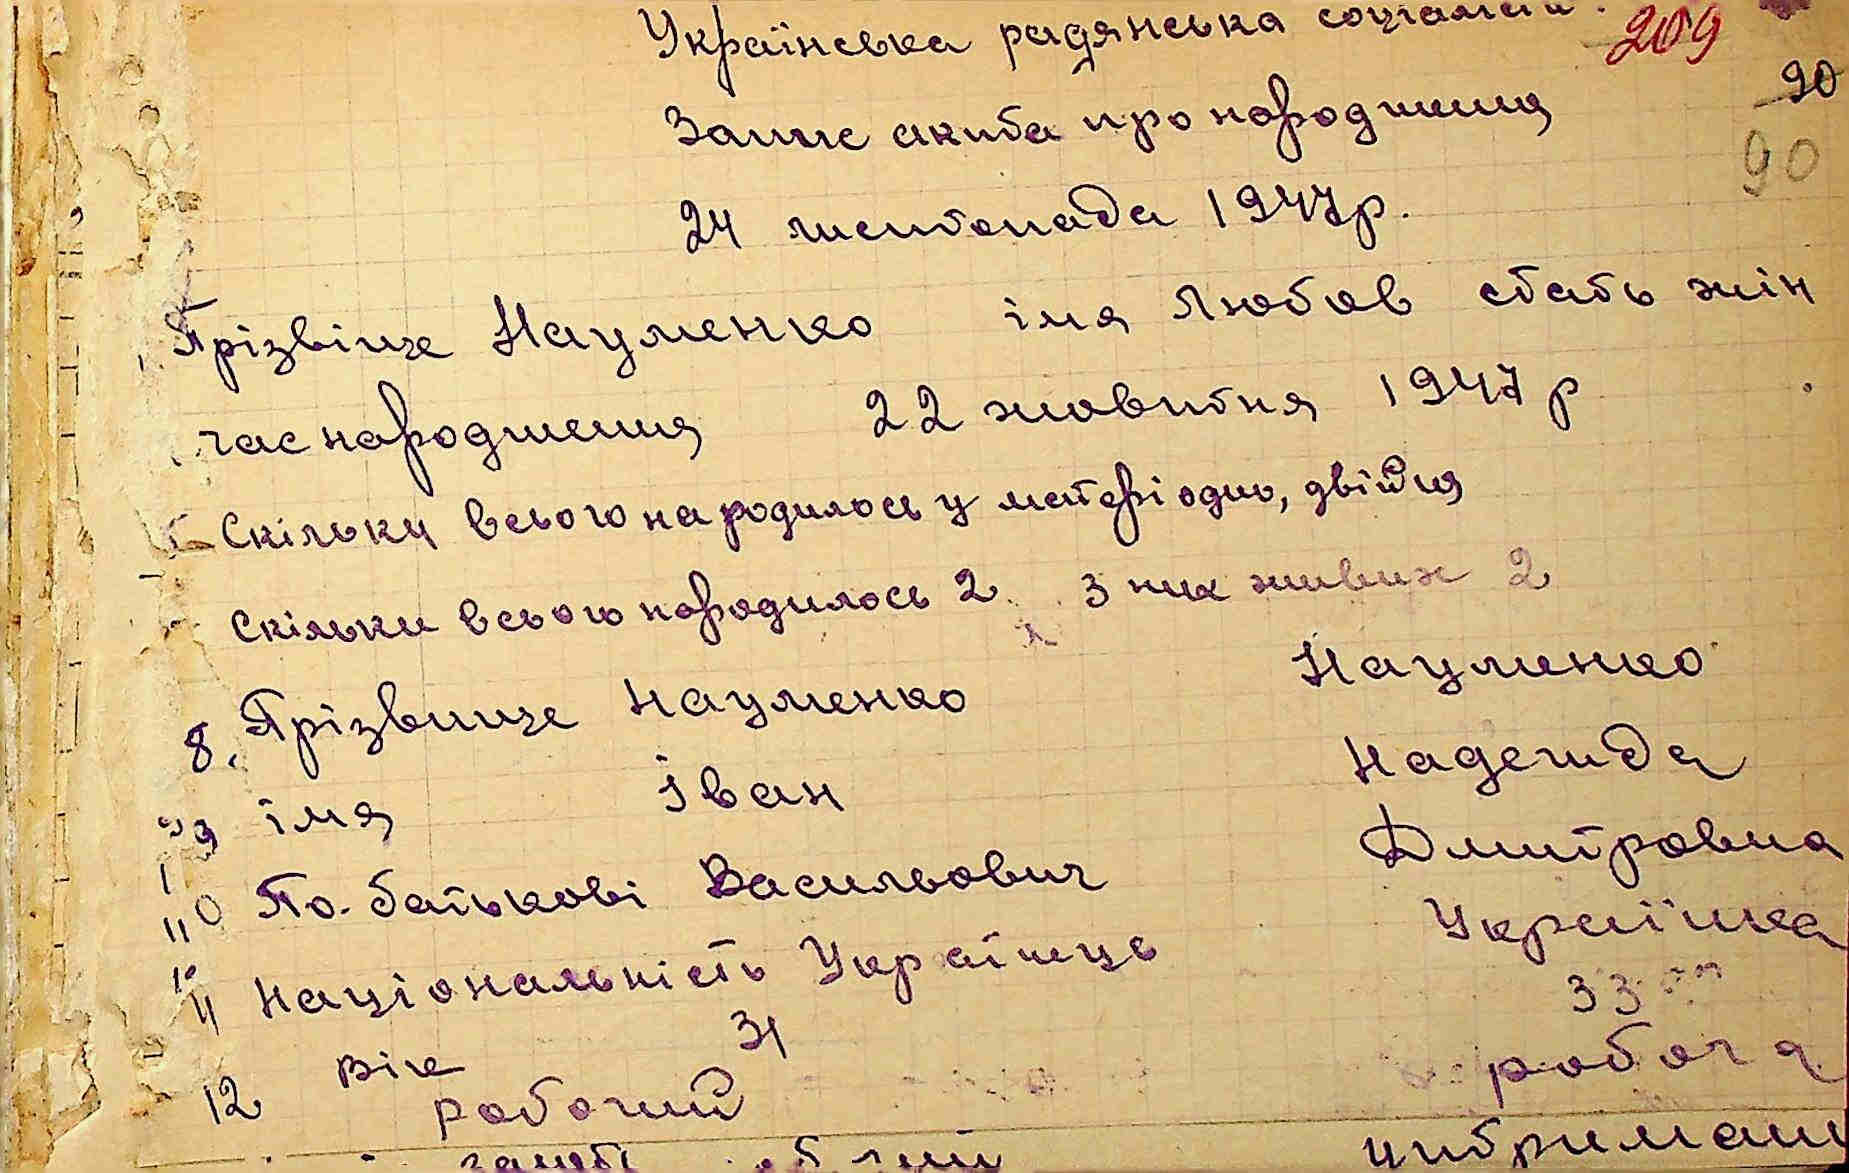 Українська радянська соціаліст.
209
90
Запис акта про народження
90
24 листопада 1947р.
Прізвіще Науменко імя Любов стать жін
час народження 22 жовтня 1947 р
Скільки всього народилось у матері одно, двійня
Скільки всього народилось 2 з них живих 2
8. Прізвище Науменко Науменко
9 імя Іван Надежда
10 По. батькові Васильович Дмитровна
11 Національність Українець Українка
12 вік 31 33
робочий робоча